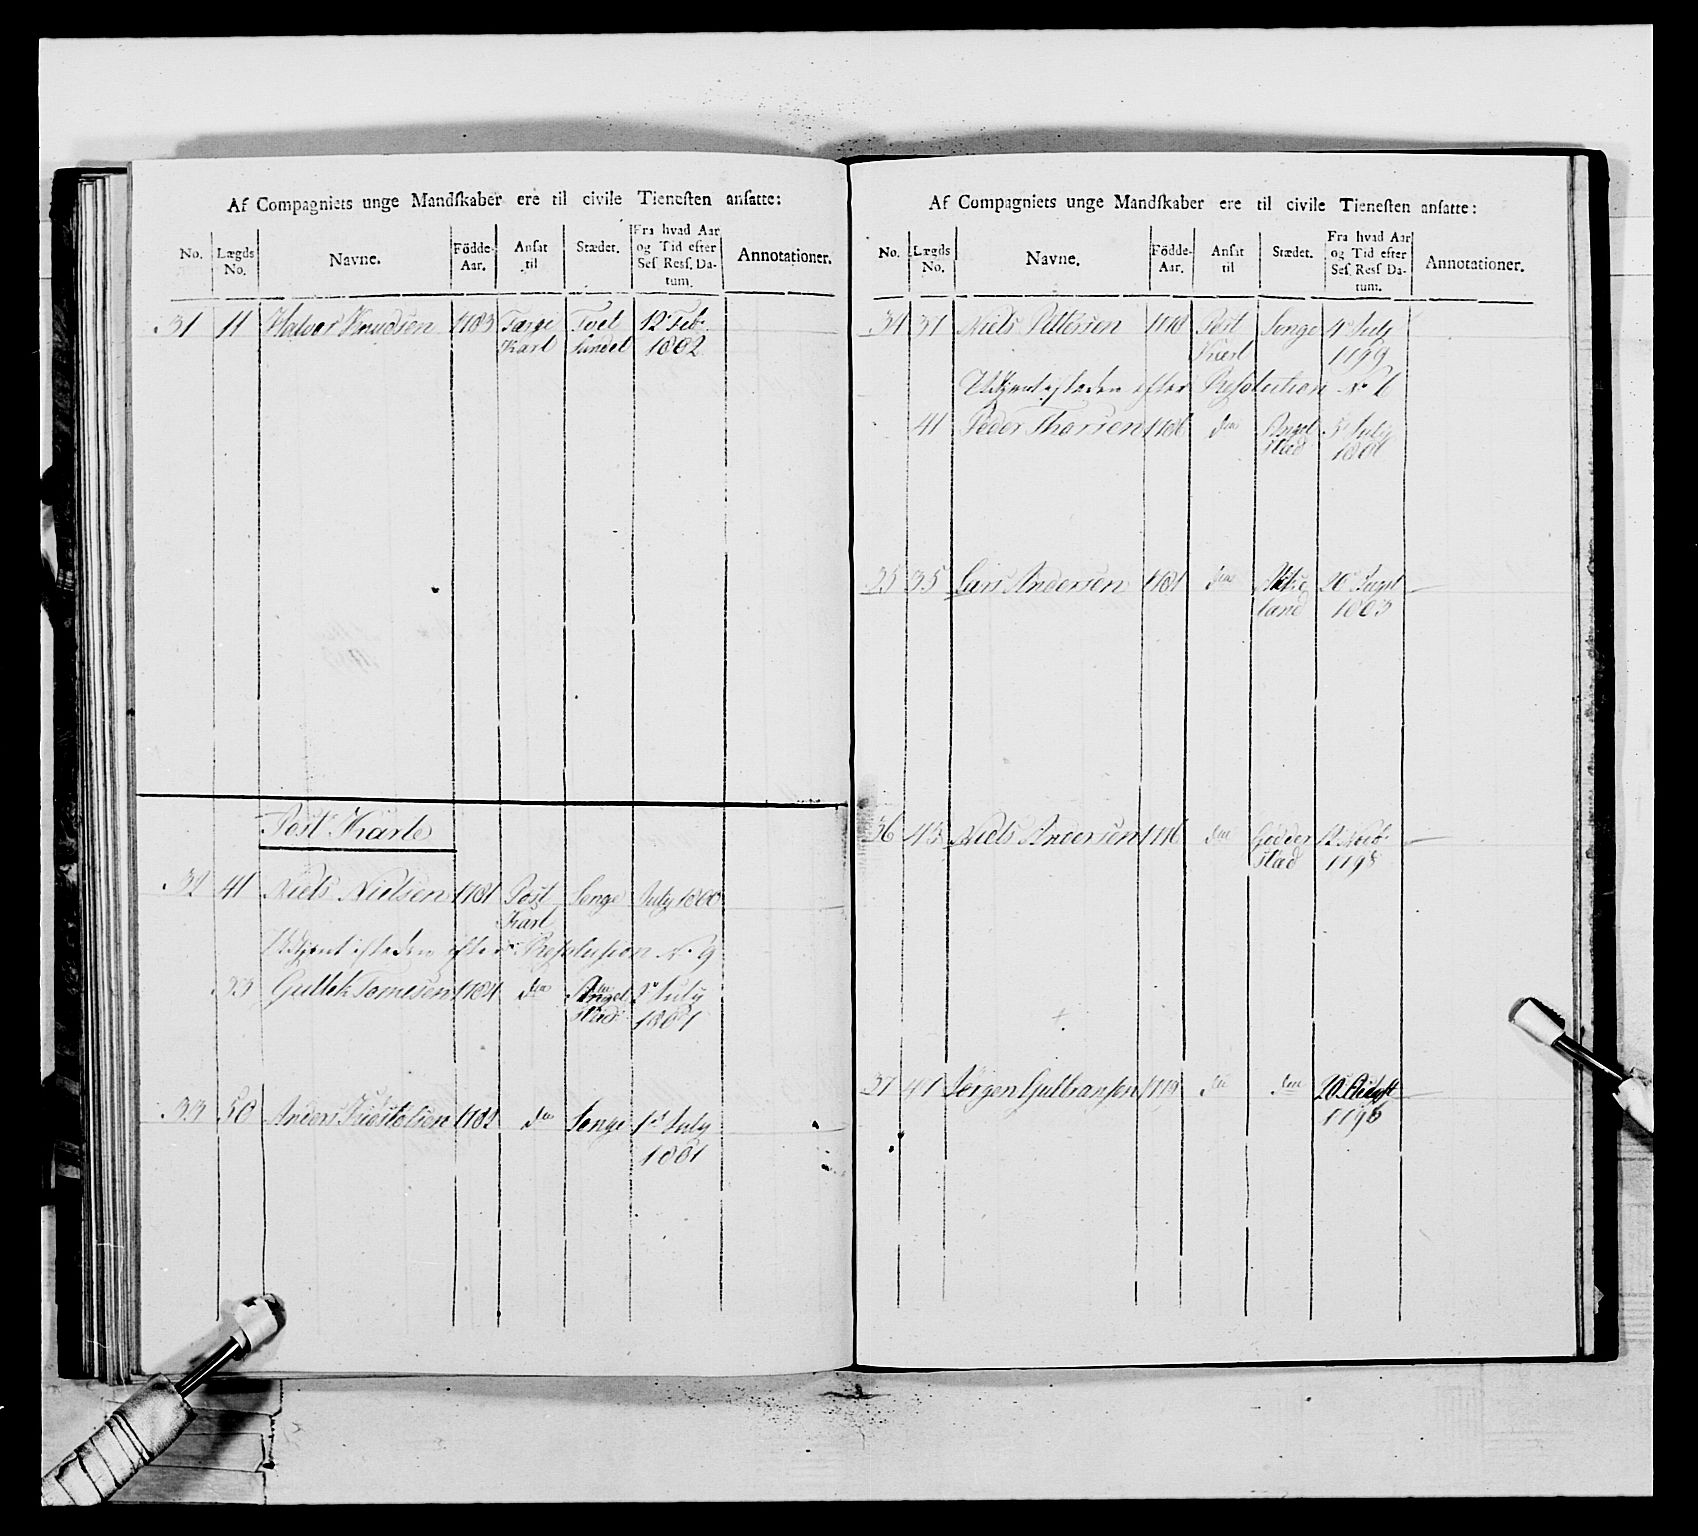 Af Compagniets unge Mandſkaber ere til civile Tieneſten anſatte:
No. Lægds No. Navne. Födde-Aar. Anſat til Stædet. Fra hvad Aar og Tid efter Seſ. Reſſ. Datum. Annotationer.
31 11 Halvor Knudsen 1783 Færge Tvet 12 Feb.
Karl Sundet 1802
Post Karle
32 41 Niels Nielsen 1781 Post Songe July 1800
Karl
efter Resolusion No 9
33 Gullek 1784 do Angel 1 July
stad 1801
33 50 Anders 1782 do Songe 1 July
1801
Af Compagniets unge Mandſkaber ere til civile Tieneſten anſatte:
No. Lægds No. Navne. Födde-Aar. Anſat til Stædet. Fra hvad Aar og Tid efter Seſ. Reſſ Datum. Annotationer.
34 37 Niels Pettersen 1778 Post Songe July
Karl 1799
efter Resolution No
41 Peder Thorsen do Angel July
stad
35 35 Lars Andersen 1781 do 20
land 1803
36 43 Niels Andersen 1776 do Gödder 12 Novb.
stad 1798
37 41 Jörgen Gulbransen 1779 do do 20
1796